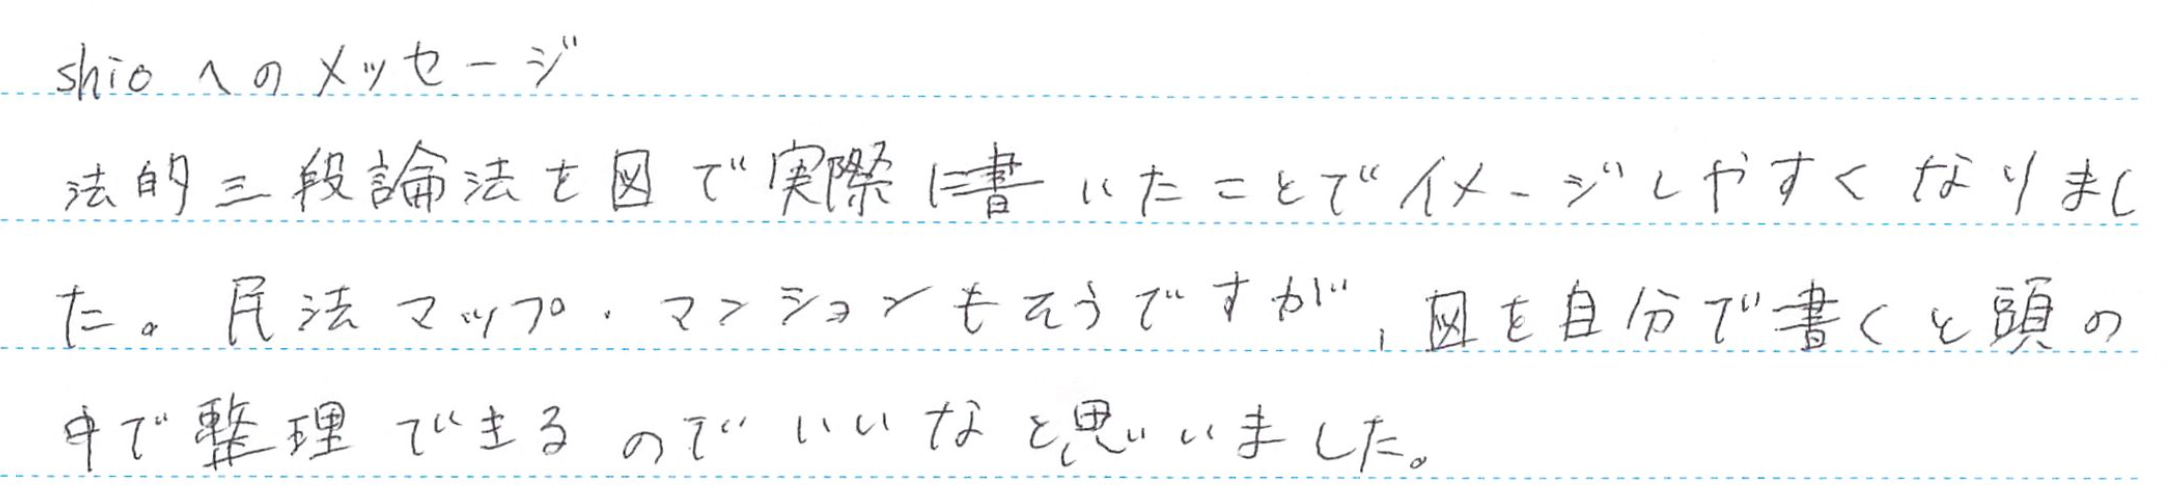 shioへのメッセージ
法的三段論法を図で実際に書いたことでイメージしやすくなりまし
た。民法マップ・マンションもそうですが、図を自分で書くと頭の
中で整理できるのでいいなと思いいました。